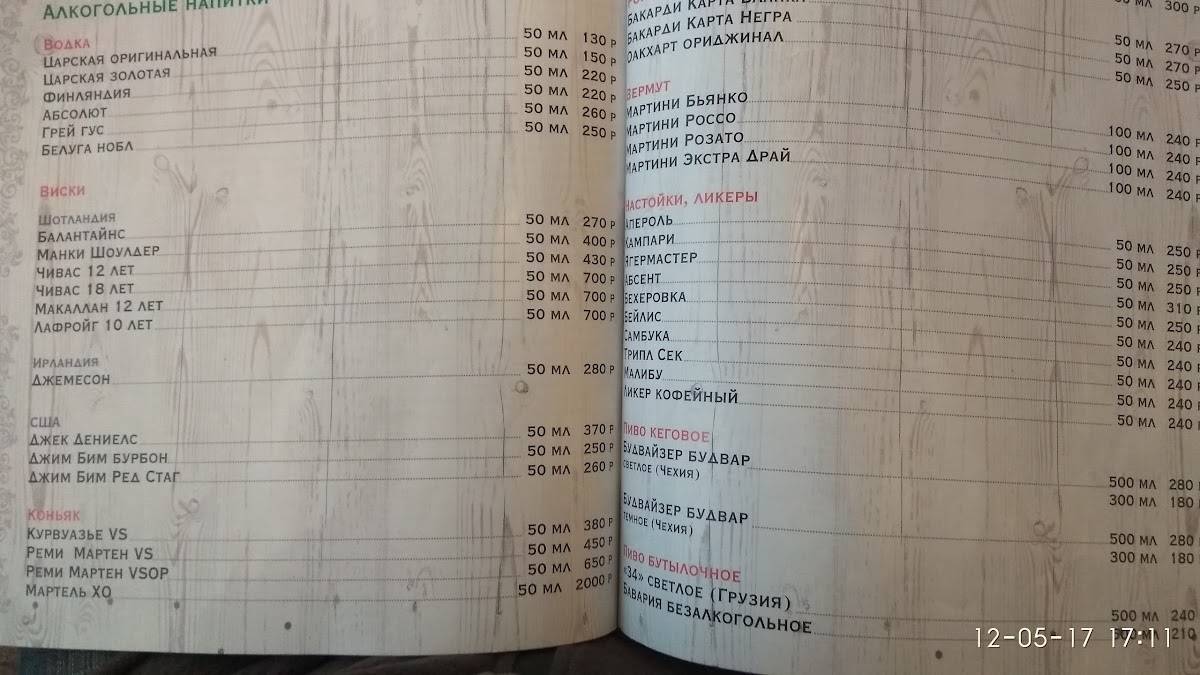 Алкогольные напитки
Водка
Царская оригинальная 50 мл 130 р
Царская золотая 50 мл 150 р
Финляндия 50 мл 220 р
Абсолют 50 мл 220 р
Грей гус 50 мл 260 р
Белуга нобл 50 мл 250 р
Виски
Шотландия
Балантайнс 50 мл 270 р
Манки Шоулдер 50 мл 400 р
Чивас 12 лет 50 мл 430 р
Чивас 18 лет 50 мл 700 р
Макаллан 12 лет 50 мл 700 р
Лафройг 10 лет 50 мл 700 р
Ирландия
Джемесон 50 мл 280 р
США
Джек Дениелс 50 мл 370 р
Джим Бим бурбон 50 мл 250 р
Джим Бим Ред Стаг 50 мл 260 р
Коньяк
Курвуазье VS 50 мл 380 р
Реми Мартен VS 50 мл 450 р
Реми Мартен VSOP 50 мл 650 р
Мартель XO 50 мл 2000 р
50 мл 300 р
Бакарди Карта Бланка 50 мл 270 р
Бакарди Карта Негра 50 мл 270 р
Оакхарт ориджинал 50 мл 250 р
Вермут
Мартини Бьянко 100 мл 240 р
Мартини Россо 100 мл 240 р
Мартини Розато 100 мл 240 р
Мартини Экстра Драй 100 мл 240 р
Настойки, ликеры
Апероль 50 мл 250 р
Кампари 50 мл 250 р
Ягермастер 50 мл 250 р
Абсент 50 мл 310 р
Бехеровка 50 мл 250 р
Бейлис 50 мл 240 р
Самбука 50 мл 240 р
Трипл Сек 50 мл 240 р
Малибу 50 мл 240 р
Ликер кофейный 50 мл 240 р
Пиво кеговое
Будвайзер Будвар 500 мл 280 р
светлое (Чехия) 300 мл 180 р
Будвайзер Будвар 500 мл 280 р
темное (Чехия) 300 мл 180 р
Пиво бутылочное
«34» светлое (Грузия) 500 мл 240
Бавария безалкогольное 210
12-05-17 17:11